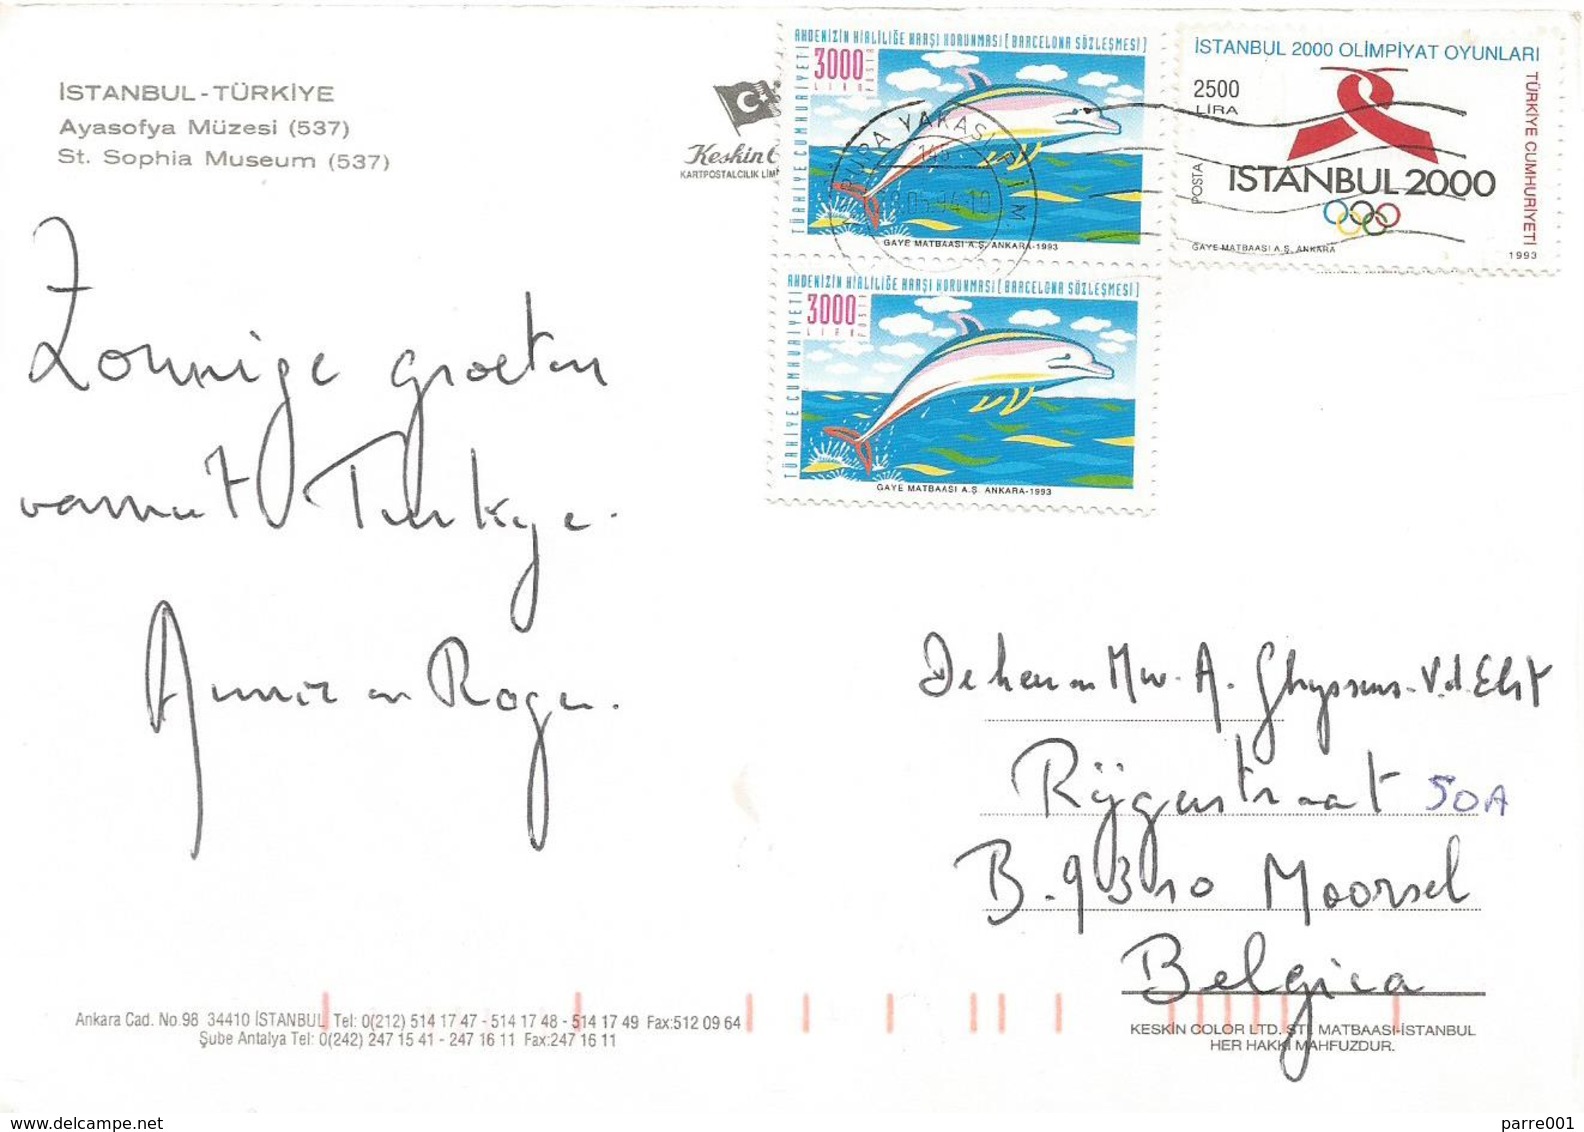 İSTANBUL - TÜRKİYE
Ayasofya Müzesi (537)
St. Sophia Museum (537)
Keskin C
KARTPOSTALCILIK LİM
AKDENİZİN KİRLİLİĞE KARŞI KORUNMASI [BARCELONA SÖZLEŞMESİ]
3000
LIRA
POSTA
TÜRKİYE CUMHURİYETİ
GAYE MATBAASI A.Ş. ANKARA-1993
İSTANBUL 2000 OLİMPİYAT OYUNLARI
2500
LİRA
POSTA
TÜRKİYE CUMHURİYETİ
İSTANBUL 2000
GAYE MATBAASI A.Ş. ANKARA
1993
YAKASI P.İ.M.
145
.05.94-10
AKDENİZİN KİRLİLİĞE KARŞI KORUNMASI [BARCELONA SÖZLEŞMESİ]
3000
LIRA
POSTA
TÜRKİYE CUMHURİYETİ
GAYE MATBAASI A.Ş. ANKARA-1993
Zonnige groeten
vanuit Turkye.
en Roger.
De heer en Mw. A. Ghyssens-V.d.Elst
Rÿgerstraat 50A
B.9310 Moorsel
Belgica
Ankara Cad. No.98 34410 İSTANBUL Tel: 0(212) 514 17 47 - 514 17 48 - 514 17 49 Fax:512 09 64
Şube Antalya Tel: 0(242) 247 15 41 - 247 16 11 Fax:247 16 11
KESKİN COLOR LTD. ŞTİ. MATBAASI-İSTANBUL
HER HAKKI MAHFUZDUR.
www.delcampe.net
parre001